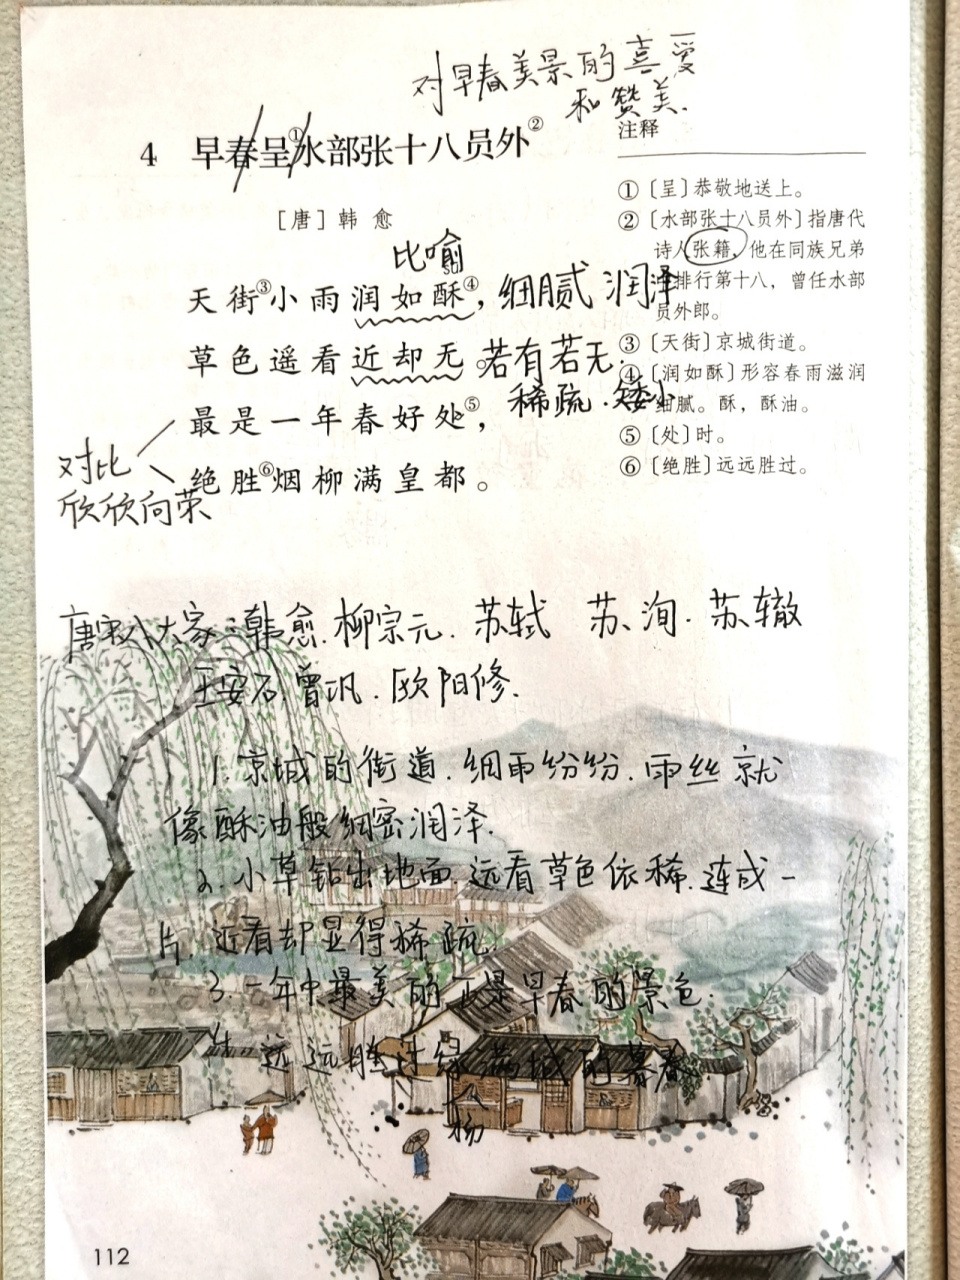 对早春美景的喜爱
和赞美.
4 早春呈①水部张十八员外②
[唐] 韩愈
比喻
天街③小雨润如酥④，细腻 润泽
sū
草色遥看近却无。若有若无
稀疏.矮小
最是一年春好处⑤，
对比
绝胜⑥烟柳满皇都。
欣欣向荣
注释
①〔呈〕恭敬地送上。
②〔水部张十八员外〕指唐代
诗人张籍，他在同族兄弟
排行第十八，曾任水部
员外郎。
③〔天街〕京城街道。
④〔润如酥〕形容春雨滋润
细腻。酥，酥油。
⑤〔处〕时。
⑥〔绝胜〕远远胜过。
唐宋八大家:韩愈.柳宗元.苏轼 苏洵.苏辙
王安石.曾巩.欧阳修.
1.京城的街道.细雨纷纷.雨丝就
像酥油般细密润泽.
2.小草钻出地面.远看草色依稀.连成一
片.近看却显得稀疏.
3.一年中最美的正是早春的景色.
远远胜过绿满城的暮春.
杨
112